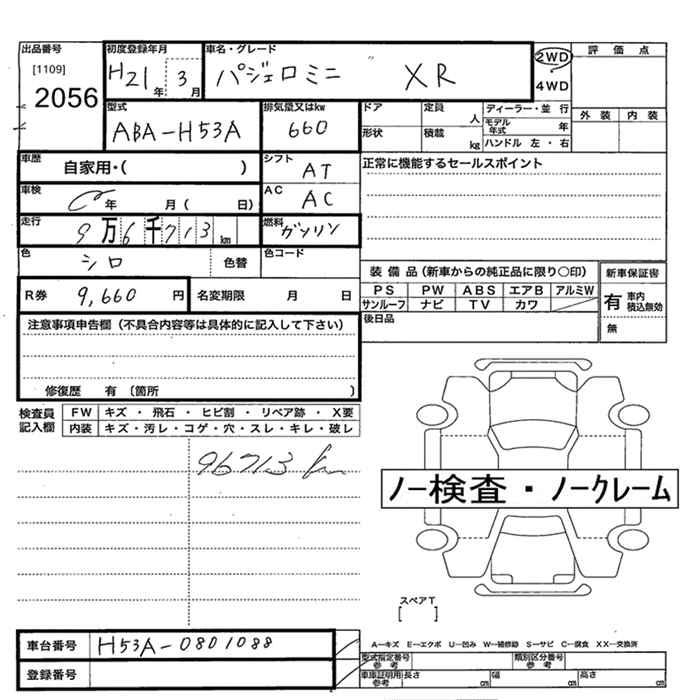 出品番号 初度登録年月 車名・グレード 2WD 評価点
[1109] H21年 3月 パジェロミニ XR 4WD
2056
型式 排気量又はkw ドア 定員 人 ディーラー・並行 外装 内装
ABA-H53A 660 形状 積載 kg モデル年式 年
ハンドル 左・右
車歴 自家用・( ) シフト AT 正常に機能するセールスポイント
車検 年 月( 日) AC AC
走行 9万6千713km 燃料 ガソリン
色 シロ 色替 色コード
装備品(新車からの純正品に限り○印) 新車保証書
R券 9,660円 名変期限 月 日 PS PW ABS エアB アルミW 有 車内積込無効
サンルーフ ナビ TV カワ 無
注意事項申告欄(不具合内容等は具体的に記入して下さい) 後日品
修復歴 有 〔箇所 〕
検査員記入欄 FW キズ・飛石・ヒビ割・リペア跡・X要
内装 キズ・汚レ・コゲ・穴・スレ・キレ・破レ
96713 km
ノー検査・ノークレーム
スペアT
[ ]
車台番号 H53A-0801088 A-キズ E-エクボ U-凹み W-補修跡 S-サビ C-腐食 XX-交換済
型式指定番号 参考 類別区分番号 参考
登録番号 車庫証明用 参考 長さ cm 幅 cm 高さ cm